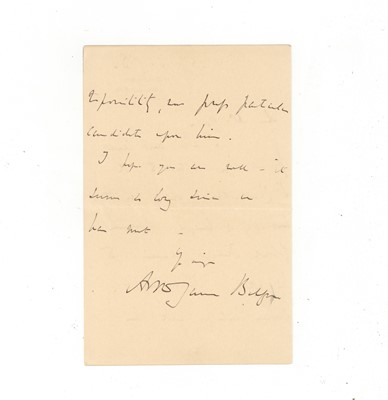 responsibility, nor press particular
candidates upon him.
I hope you are well - it
seems so long since we
have met -
Yrs
Balfour